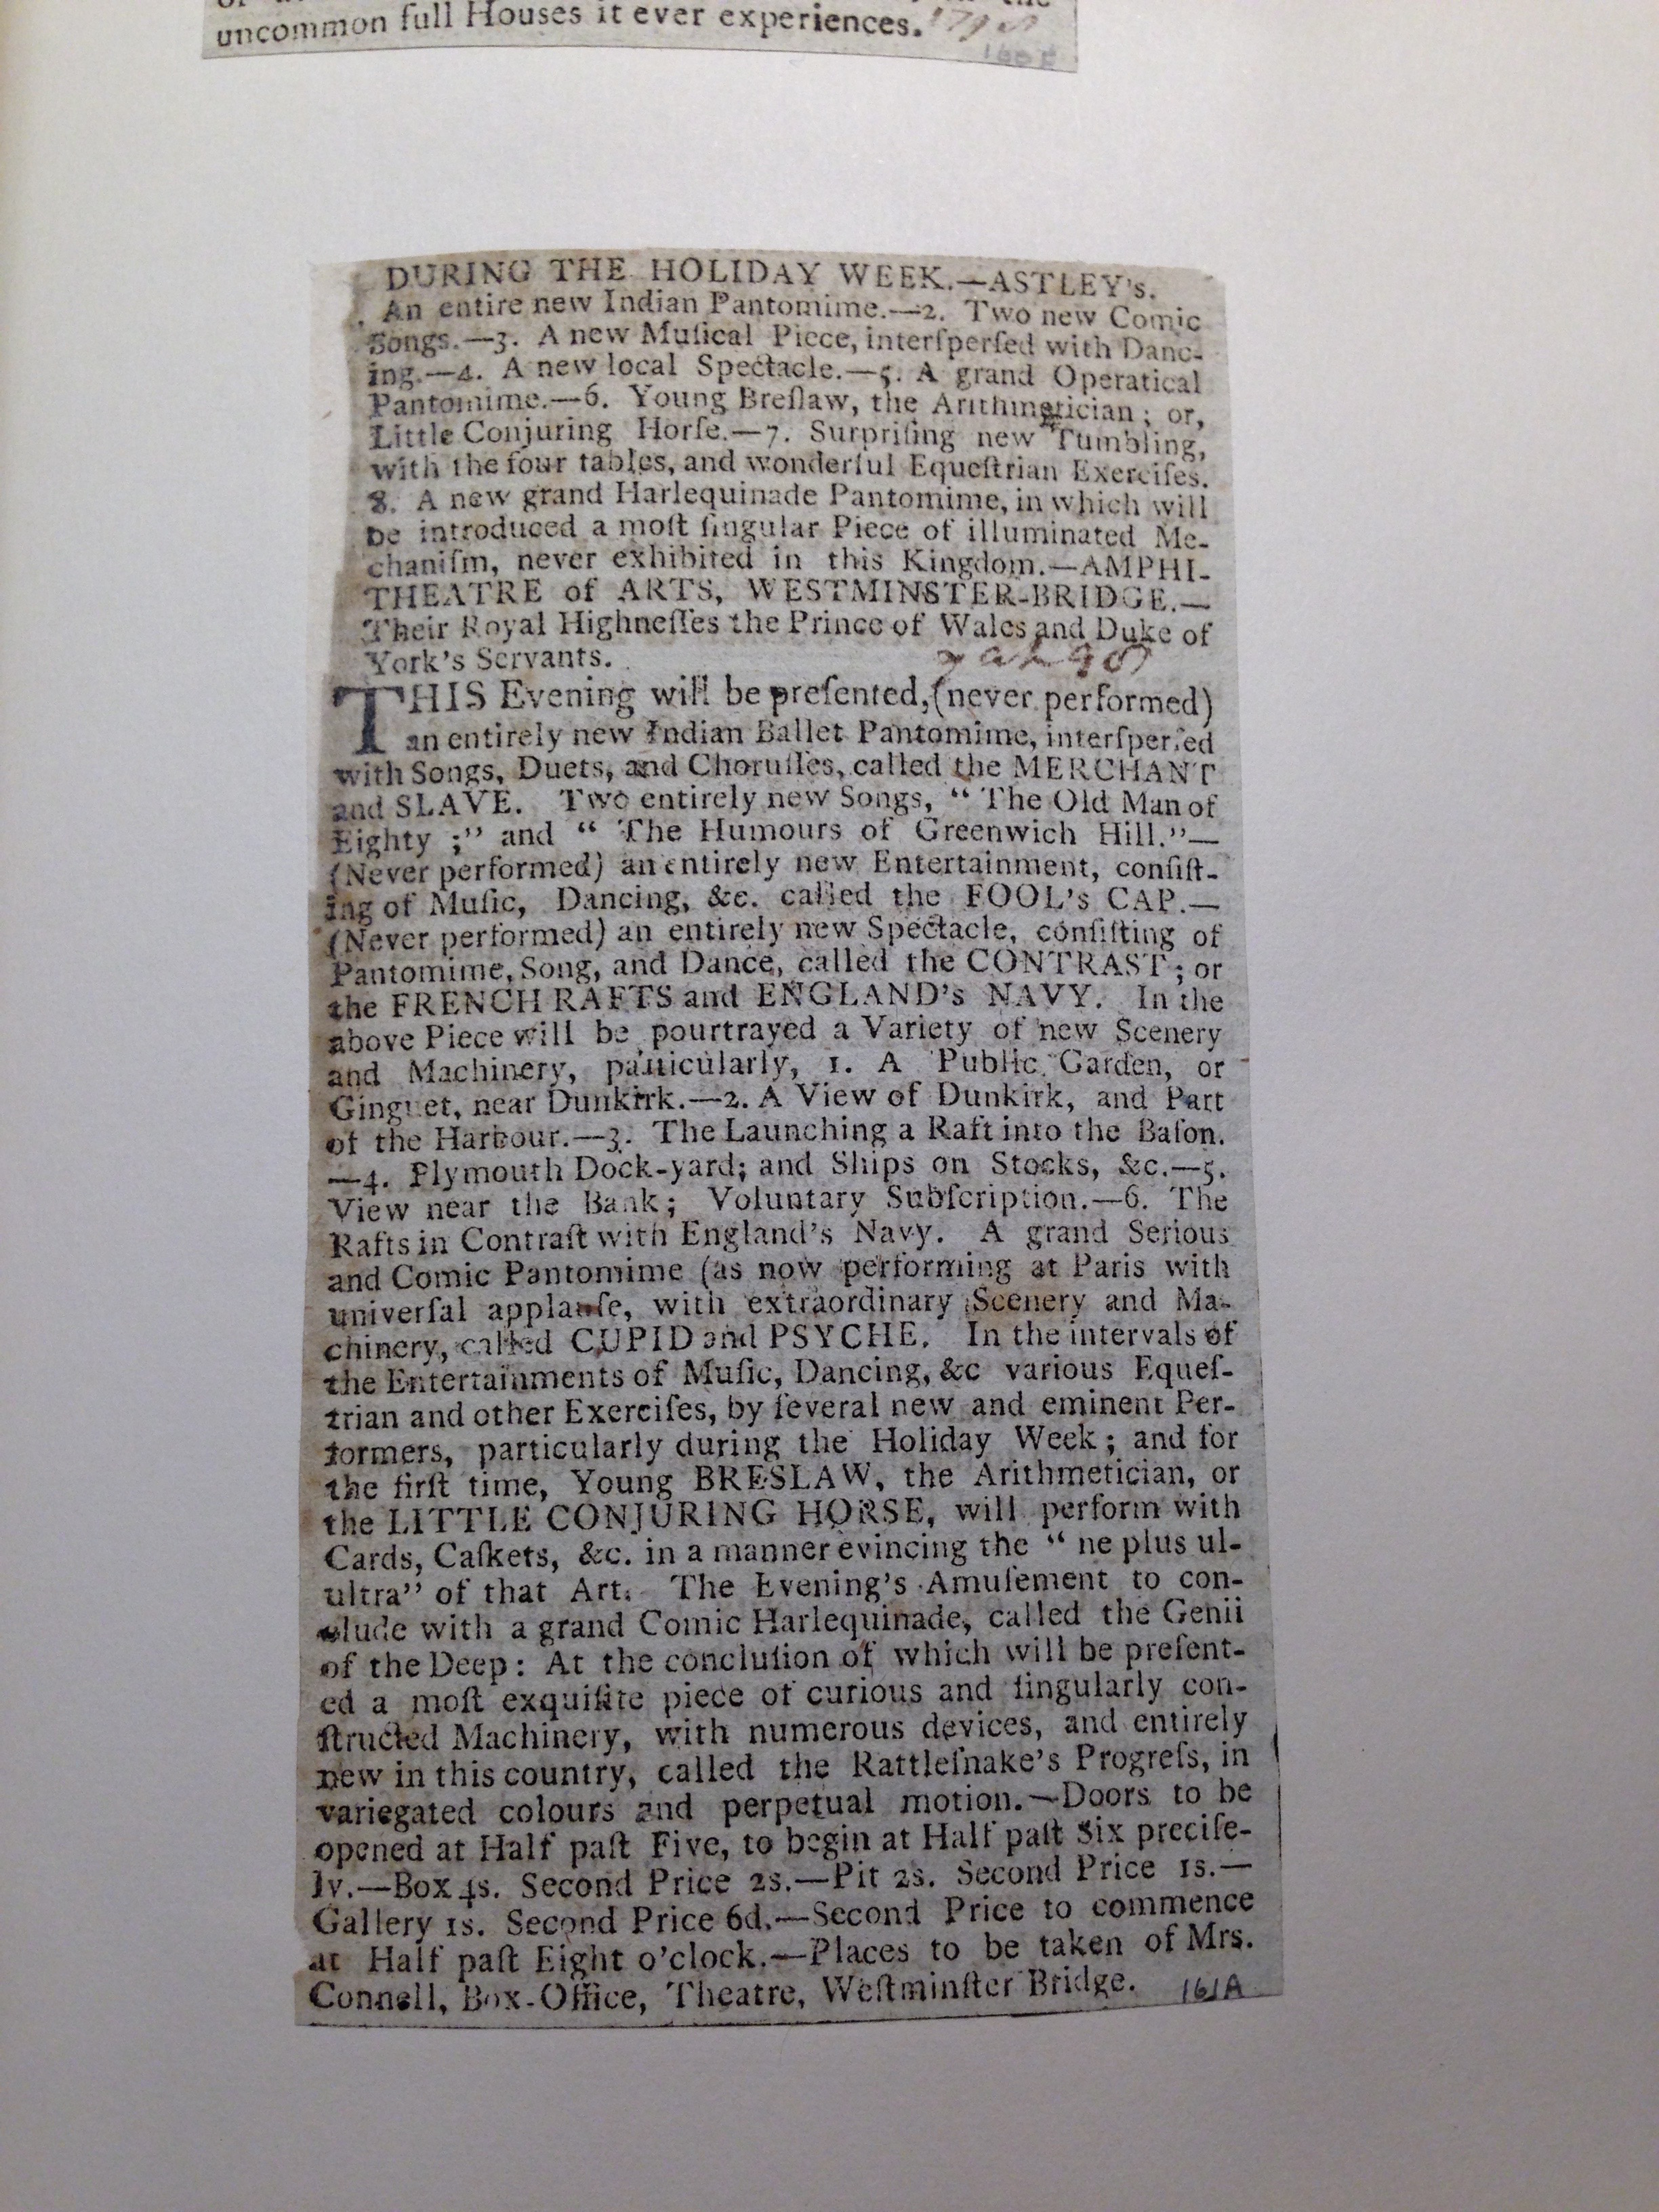 uncommon full Houses it ever experiences.
DURING THE HOLIDAY WEEK.—ASTLEY's.
An entire new Indian Pantomime.—2. Two new Comic
Songs.—3. A new Muſical Piece, interſperſed with Danc-
ing.—4. A new local Spectacle.—5. A grand Operatical
Pantomime.—6. Young Breſlaw, the Arithmetician; or,
Little Conjuring Horſe.—7. Surpriſing new Tumbling,
with the four tables, and wonderful Equeſtrian Exerciſes.
8. A new grand Harlequinade Pantomime, in which will
be introduced a moſt ſingular Piece of illuminated Me-
chaniſm, never exhibited in this Kingdom.—AMPHI-
THEATRE of ARTS, WESTMINSTER-BRIDGE.—
Their Royal Highneſſes the Prince of Wales and Duke of
York's Servants.
THIS Evening will be preſented, (never performed)
an entirely new Indian Ballet Pantomime, interſperſed
with Songs, Duets, and Choruſſes, called the MERCHANT
and SLAVE. Two entirely new Songs, “ The Old Man of
Eighty ;” and “ The Humours of Greenwich Hill.”—
(Never performed) an entirely new Entertainment, conſiſt-
ing of Muſic, Dancing, &c. called the FOOL's CAP.—
(Never performed) an entirely new Spectacle, conſiſting of
Pantomime, Song, and Dance, called the CONTRAST; or
the FRENCH RAFTS and ENGLAND's NAVY. In the
above Piece will be pourtrayed a Variety of new Scenery
and Machinery, particularly, 1. A Public Garden, or
Ginguet, near Dunkirk.—2. A View of Dunkirk, and Part
of the Harbour.—3. The Launching a Raft into the Baſon.
—4. Plymouth Dock-yard; and Ships on Stocks, &c.—5.
View near the Bank; Voluntary Subſcription.—6. The
Rafts in Contraſt with England's Navy. A grand Serious
and Comic Pantomime (as now performing at Paris with
univerſal applauſe, with extraordinary Scenery and Ma-
chinery, called CUPID and PSYCHE. In the intervals of
the Entertainments of Muſic, Dancing, &c various Equeſ-
trian and other Exerciſes, by ſeveral new and eminent Per-
formers, particularly during the Holiday Week; and for
the firſt time, Young BRESLAW, the Arithmetician, or
the LITTLE CONJURING HORSE, will perform with
Cards, Caſkets, &c. in a manner evincing the “ ne plus ul-
ultra” of that Art. The Evening's Amuſement to con-
clude with a grand Comic Harlequinade, called the Genii
of the Deep: At the concluſion of which will be preſent-
ed a moſt exquiſite piece of curious and ſingularly con-
ſtructed Machinery, with numerous devices, and entirely
new in this country, called the Rattleſnake's Progreſs, in
variegated colours and perpetual motion.—Doors to be
opened at Half paſt Five, to begin at Half paſt Six preciſe-
ly.—Box 4s. Second Price 2s.—Pit 2s. Second Price 1s.—
Gallery 1s. Second Price 6d.—Second Price to commence
at Half paſt Eight o'clock.—Places to be taken of Mrs.
Connell, Box-Office, Theatre, Weſtminſter Bridge. 161A